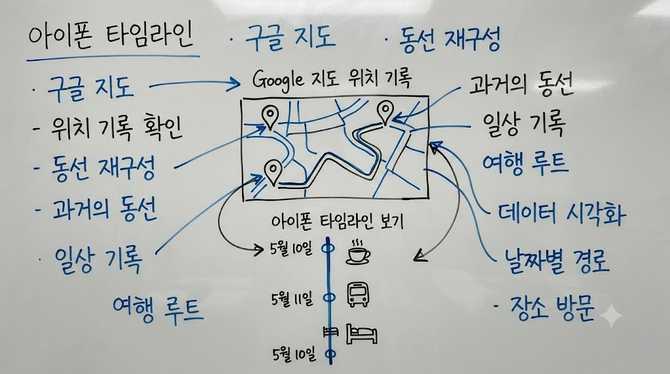 아이폰 타임라인
· 구글 지도
· 동선 재구성
· 구글 지도
- 위치 기록 확인
- 동선 재구성
- 과거의 동선
· 일상 기록
여행 루트
Google 지도 위치 기록
아이폰 타임라인 보기
5월 10일
5월 11일
5월 10일
과거의 동선
일상 기록
여행 루트
데이터 시각화
날짜별 경로
- 장소 방문